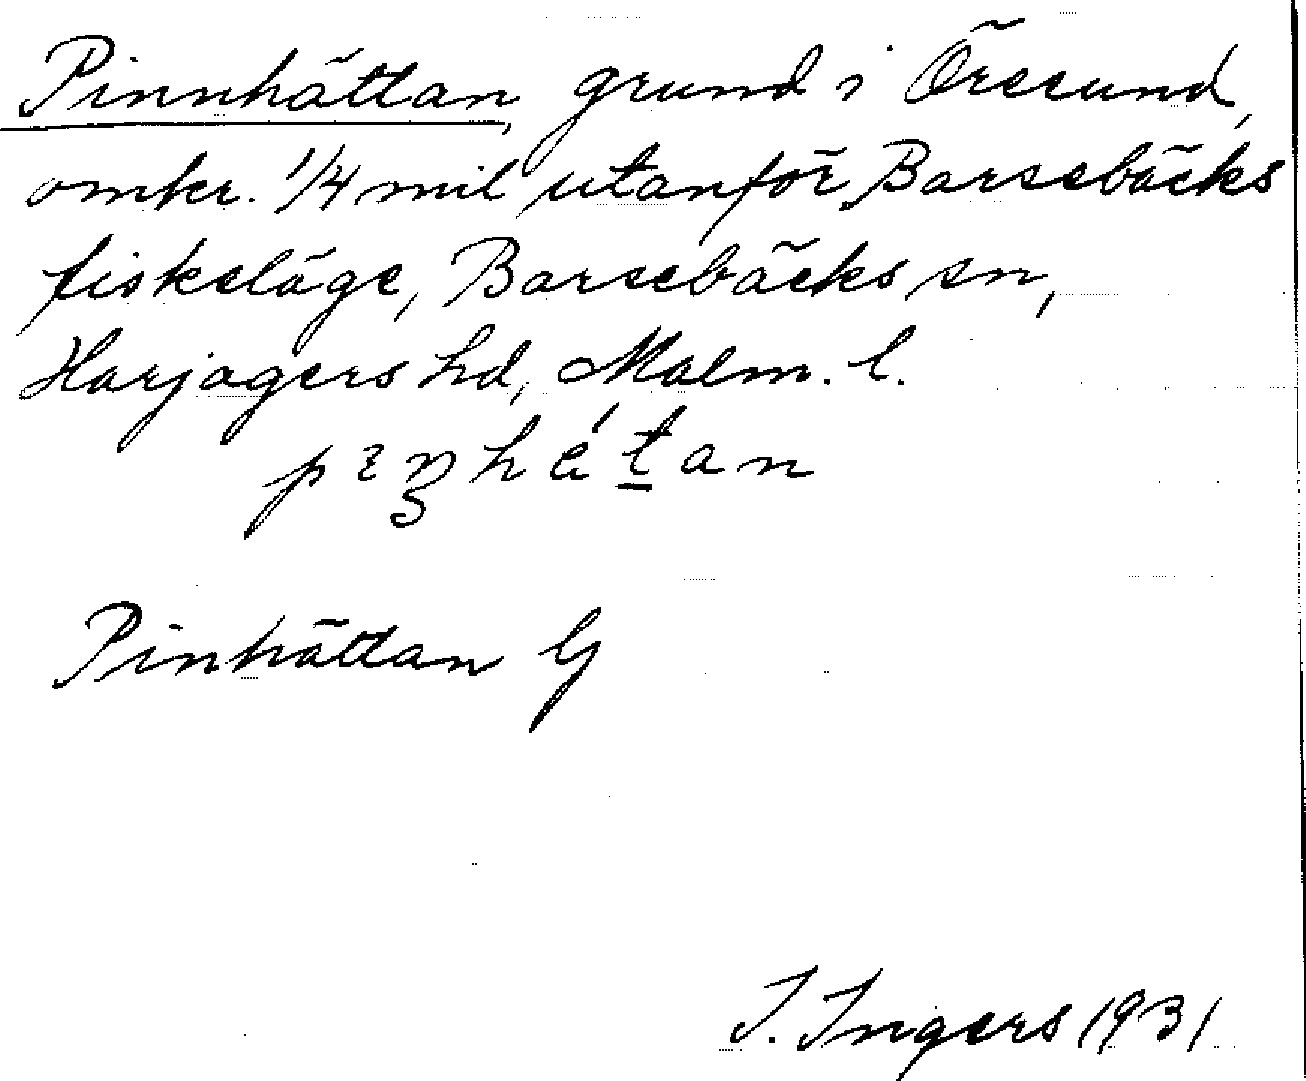 Pinnhättan, grund i Öresund,
omkr. 1/4 mil utanför Barsebäcks
fiskeläge, Barsebäcks sn,
Harjagers hd, Malm. l.
Pinhättan G
I. Ingers 1931